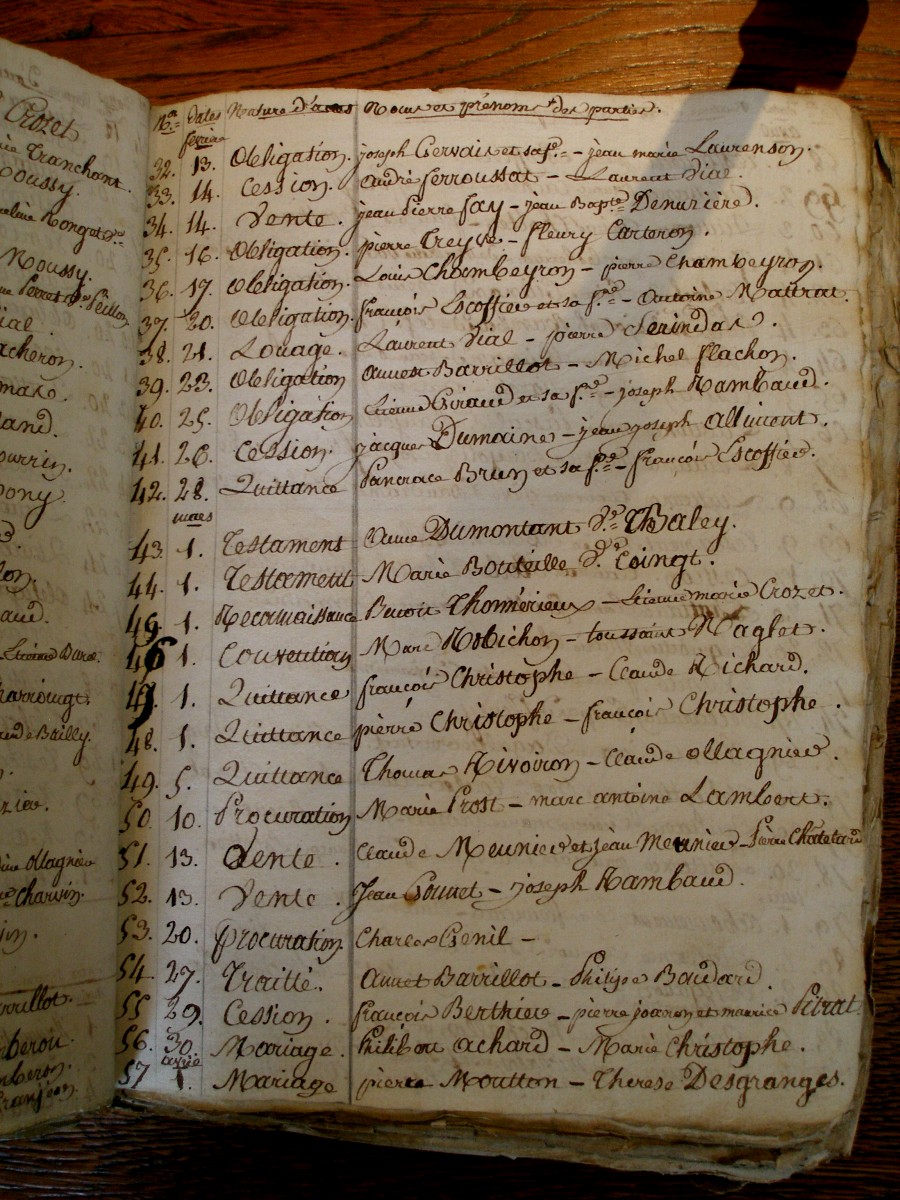 Crozet
Tranchant.
Noussy.
Monget
Noussy.
Perret
acheron.
pony
Bailly.
Ollagnier
Charvin.
Barrillot
Nos Dates Nature d'actes Noms et prénoms des parties.
fevrier
32. 13. Obligation. joseph Gervais et sa fe. – jean marie Laurenson.
33. 14. Cession. andré ferroussat – Laurent Vial.
34. 14. Vente. jean pierre fay – jean Bapte Denuzière.
35. 16. Obligation. pierre Treyve – fleury Carteron.
36. 17. Obligation. Louis Chambeyron – pierre Chambeyron.
37. 20. Obligation. françois Escoffier et sa fe. – Antoine Maurat.
38. 21. Louage. Laurent Vial – pierre
39. 23. Obligation annet Barrillot – Michel flachon.
40. 25. Obligation Etienne Giraud et sa fe. – joseph Rambaud.
41. 26. Cession. jacques Dumaine – jean joseph allimont.
42. 28. Quittance Pancrace Brun et sa fe. – françois Escoffier.
mars
43. 1. Testament Anne Dumontant de. Thaley.
44. 1. Testament Marie Bouteille de. Coingt.
45. 1. Reconnaissance Benoit Thomérieux – Etienne marie Crozet.
46 1. Convention Marc Robichon – toussaint Naglet.
47. 1. Quittance françois Christophe – Claude Richard.
48. 1. Quittance pierre Christophe – françois Christophe.
49. 5. Quittance Thomas Rivoiron – Claude ollagnier.
50. 10. Procuration Marie Prost – marc antoine Lambert.
51. 13. Vente. Claude Meunier et jean Meunier – Pierre Châtelard
52. 13. Vente. Jean Gonnet – joseph Rambaud.
53. 20. procuration Charles Genil –
54. 27. Traitté. Annet Barrillot – Philipe Baudard.
55 29. Cession. françois Berthier – pierre joanon et maurice Peirat.
56. 30. Mariage. Philibert achard – Marie Christophe.
avril
57 1. Mariage pierre Moutton – Therese Desgranges.